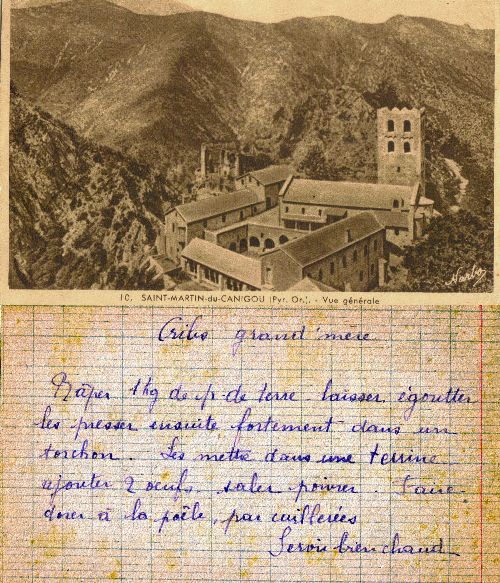 Narbo
10. SAINT-MARTIN-du-CANIGOU (Pyr. Or.). - Vue générale
grand'mère
Râper 1 kg de p de terre laisser égoutter
les presser ensuite fortement dans un
torchon. Les mettre dans une terrine
ajouter 2 oeufs, saler poivrer. Faire
dorer à la poêle, par cuillerées
Servir bien chaud